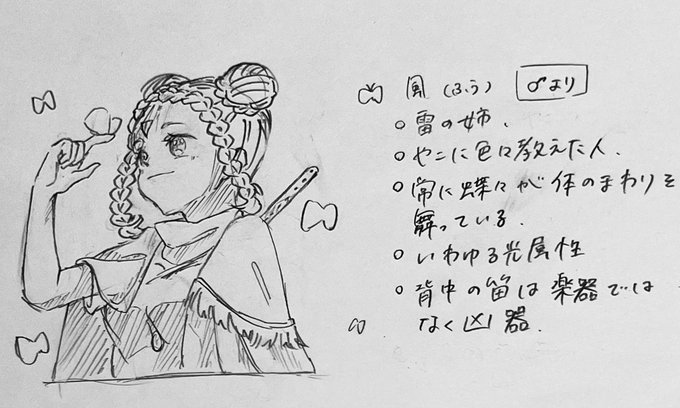 風 (ふう) ♂より
○ 雷の姉.
○ やこに色々教えた人.
○ 常に蝶々が体のまわりを
舞っている.
○ いわゆる光属性
○ 背中の笛は楽器では
なく凶器.